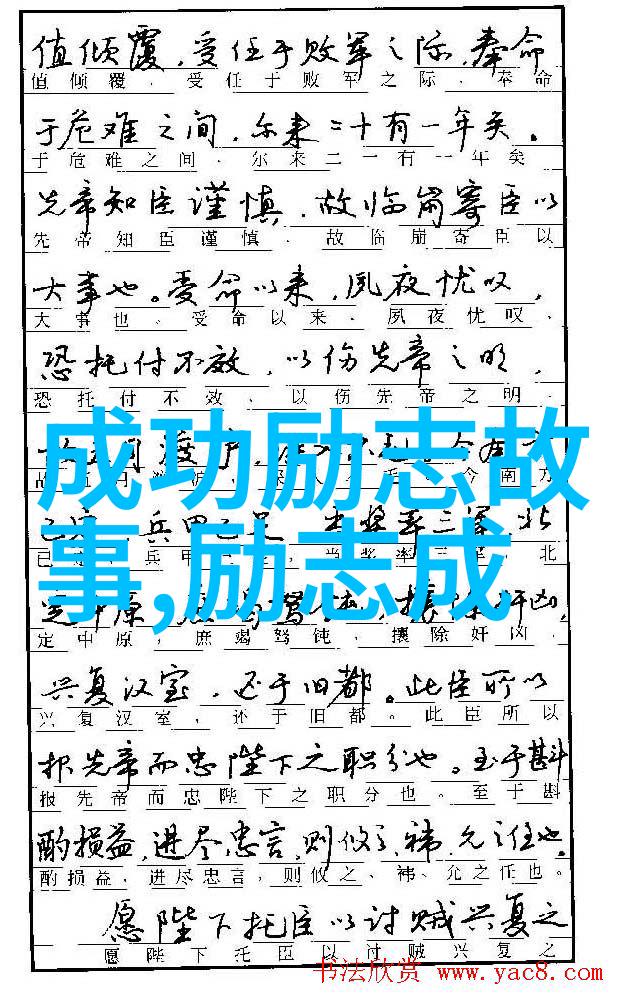 值倾覆，受任于败军之际，奉命
值倾覆，受任于败军之际，奉命
于危难之间，尔来二十有一年矣。
于危难之间，尔来二一有一年矣
先帝知臣谨慎，故临崩寄臣以
先帝知臣谨慎，故临崩寄臣以
大事也。受命以来，夙夜忧叹，
大事也。受命以来，夙夜忧叹，
恐托付不效，以伤先帝之明，
恐托付不效，以伤先帝之明，
成功励志故
事,励志成
今南方
兵甲已足 三军，北
兵甲 三军，北
定中原，
定中原，庶竭驽钝，攘除奸凶，
兴复汉室，还于旧都。此臣所以
兴复汉室，还于旧都。此臣所以
报先帝而忠陛下之职分也。至于斟
报先帝而忠陛下之职分也。至于斟
酌损益，进尽忠言，则攸之、祎、允之任也。
酌损益，进尽忠言，则攸之、祎、允之任也。
愿陛下托臣以讨贼兴复之
愿陛下托臣以讨贼兴复之
书法欣赏 www.yac8.com